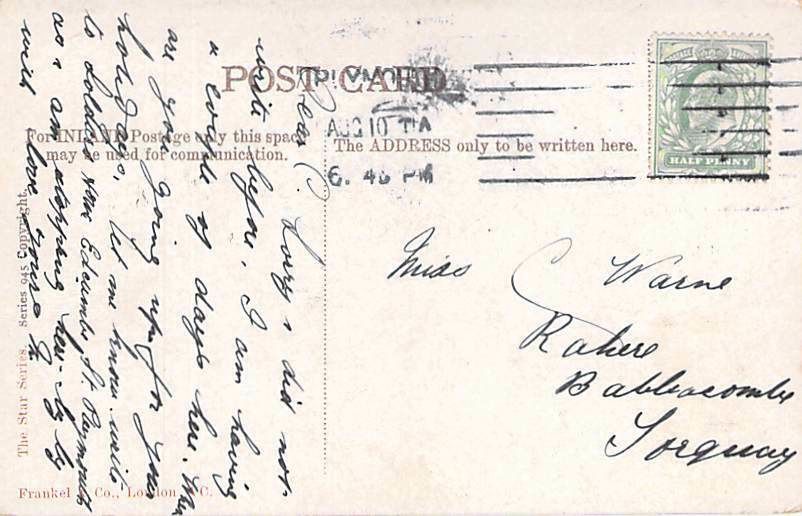 POST CARD
PLYMOUTH
AUG 10 11 A
6. 45 PM
HALF PENNY
For INLAND Postage only this space
may be used for communication.
The ADDRESS only to be written here.
Dear C. Sorry I did not
write before. I am having
a couple of days here. When
are you going up for your
holidays. let me know. write
to Edgcumbe St. Plymouth
as I am stopping here.
with love yours
Miss C Warne
Rahere
Babbacombe
Torquay
The Star Series. Series 945 Copyright.
Frankel & Co., London E.C.